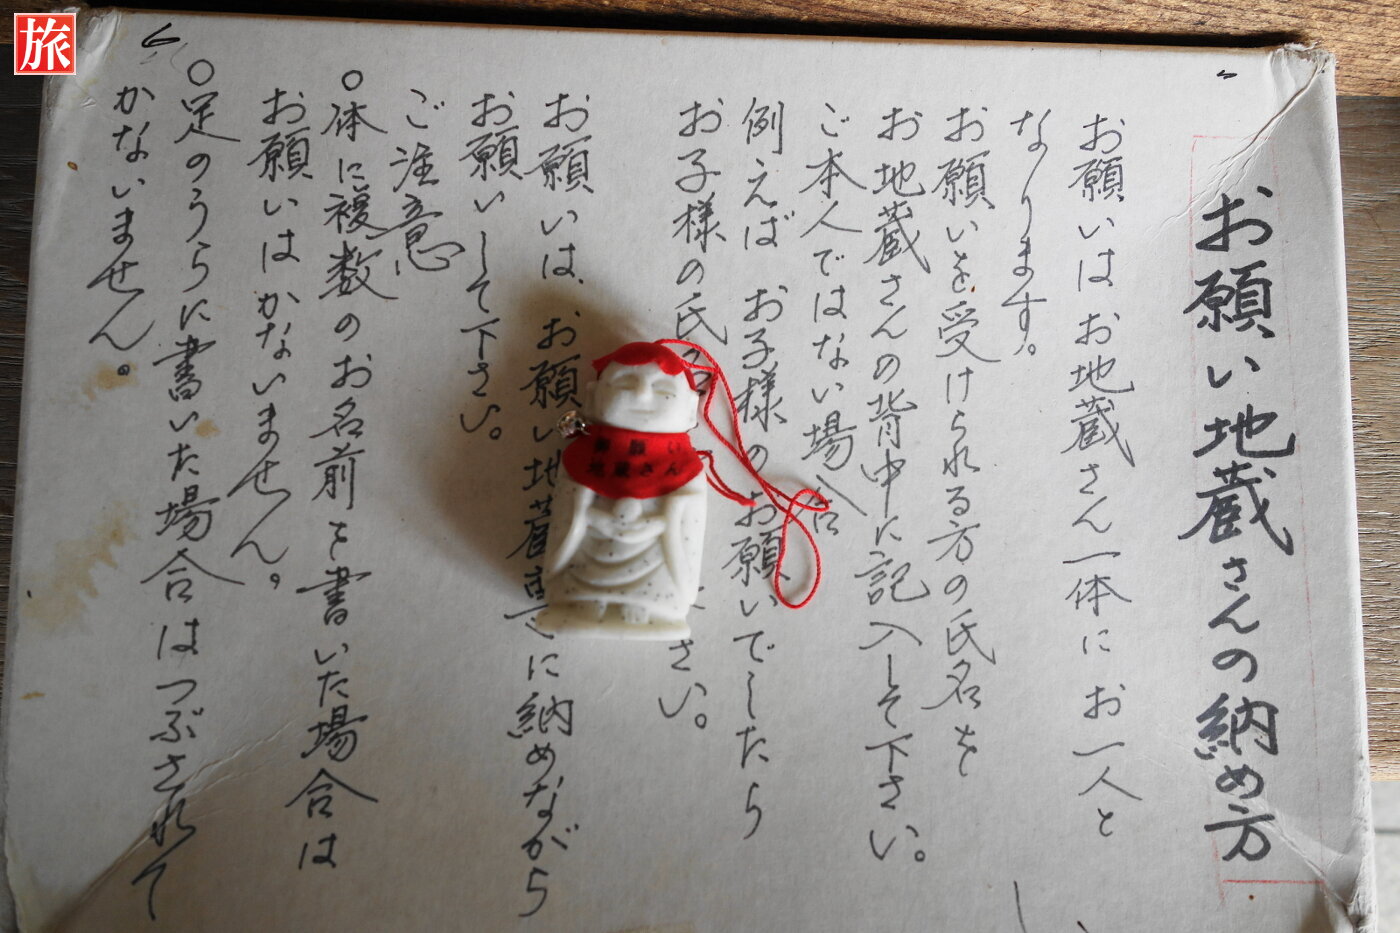 お願い地蔵さんの納め方
お願いはお地蔵さん一体にお一人と
なります。
お願いを受けられる方の氏名を
お地蔵さんの背中に記入して下さい。
ご本人ではない場合
例えばお子様のお願いでしたら
お子様の氏名 さい。
お願いは、お願い地蔵 に納めながら
お願いして下さい。
ご注意
○体に複数のお名前を書いた場合は
お願いはかないません。
○足のうらに書いた場合はつぶされて
かないません。
お願い
地蔵さん
旅